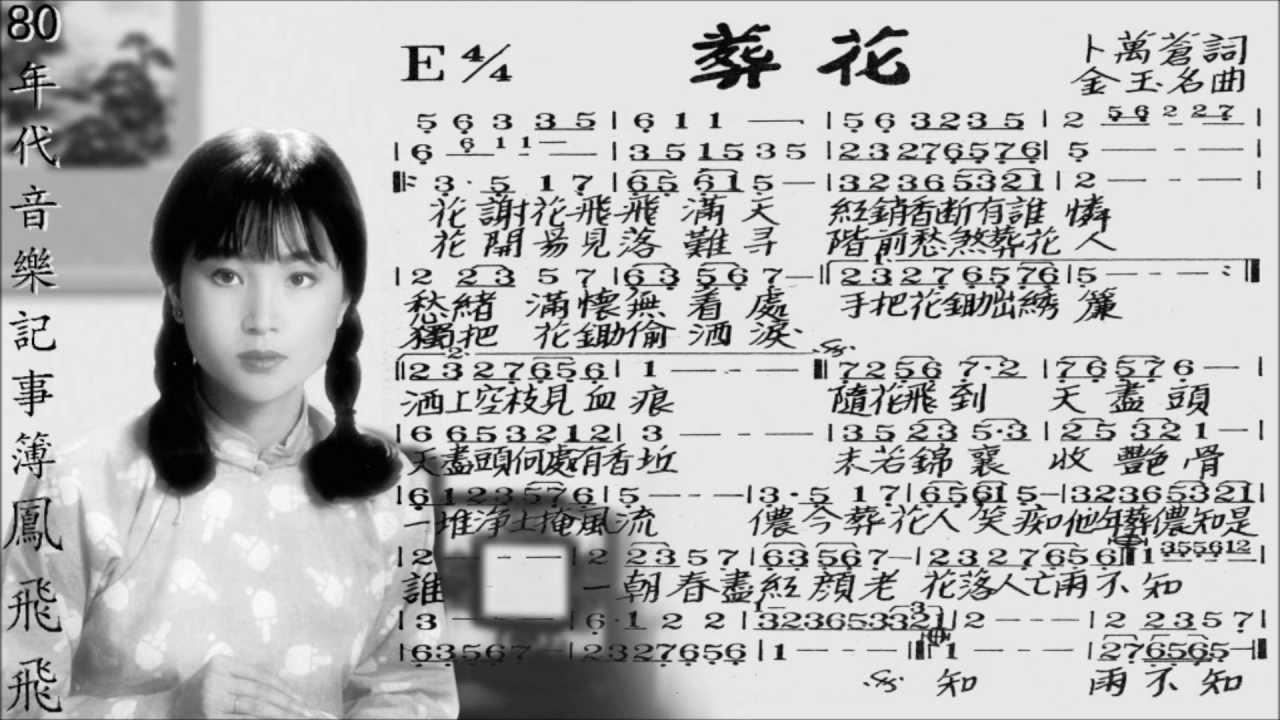 80年代音樂記事簿鳳飛飛
葬花
E 4/4
卜萬蒼詞
金玉名曲
5 6 3 3 5 | 6 1 1 — | 5 6 3 2 3 5 | 2 — 5 6 2 2 7 |
| 6 — 6 1 1 — — | 3 5 1 5 3 5 | 2 3 2 7 6 5 7 6 | 5 — — — |
3 · 5 1 7 | 6 5 6 1 5 — | 3 2 3 6 5 3 2 1 | 2 — — — |
花謝花飛飛滿天 紅銷香断有誰憐
花開易見落難寻 階前愁煞葬花人
| 2 2 3 5 7 | 6 3 5 6 7 — | 2 3 2 7 6 5 7 6 | 5 — — — :
愁緒滿懷無着處 手把花鋤出綉簾
獨把花鋤偷洒淚
2 3 2 7 6 5 6 | 1 — — — | 7 2 5 6 7 · 2 | 7 6 5 7 6 — |
洒上空枝見血痕 隨花飛到天盡頭
| 6 6 5 3 2 1 2 | 3 — — — | 3 5 2 3 5 · 3 | 2 5 3 2 1 — |
天盡頭何處有香坵 未若錦襄收艷骨
| 6 1 2 3 5 7 6 | 5 — — — | 3 · 5 1 7 | 6 5 6 1 5 — | 3 2 3 6 5 3 2 1 |
一堆浄土掩風流 儂今葬花人笑痴他年葬儂知是
| 2 — — — | 2 2 3 5 7 | 6 3 5 6 7 — | 2 3 2 7 6 5 6 | 1 3 5 5 6 1 2 |
誰 一朝春盡紅顔老 花落人亡兩不知
| 3 — — — | 6 · 1 2 2 | 3 2 3 6 5 3 3 2 1 | 2 — — — | 2 2 3 5 7 |
| 6 3 5 6 7 — | 2 3 2 7 6 5 6 | 1 — — — | 1 — — — | 2 7 6 5 6 5 — |
知 兩不知